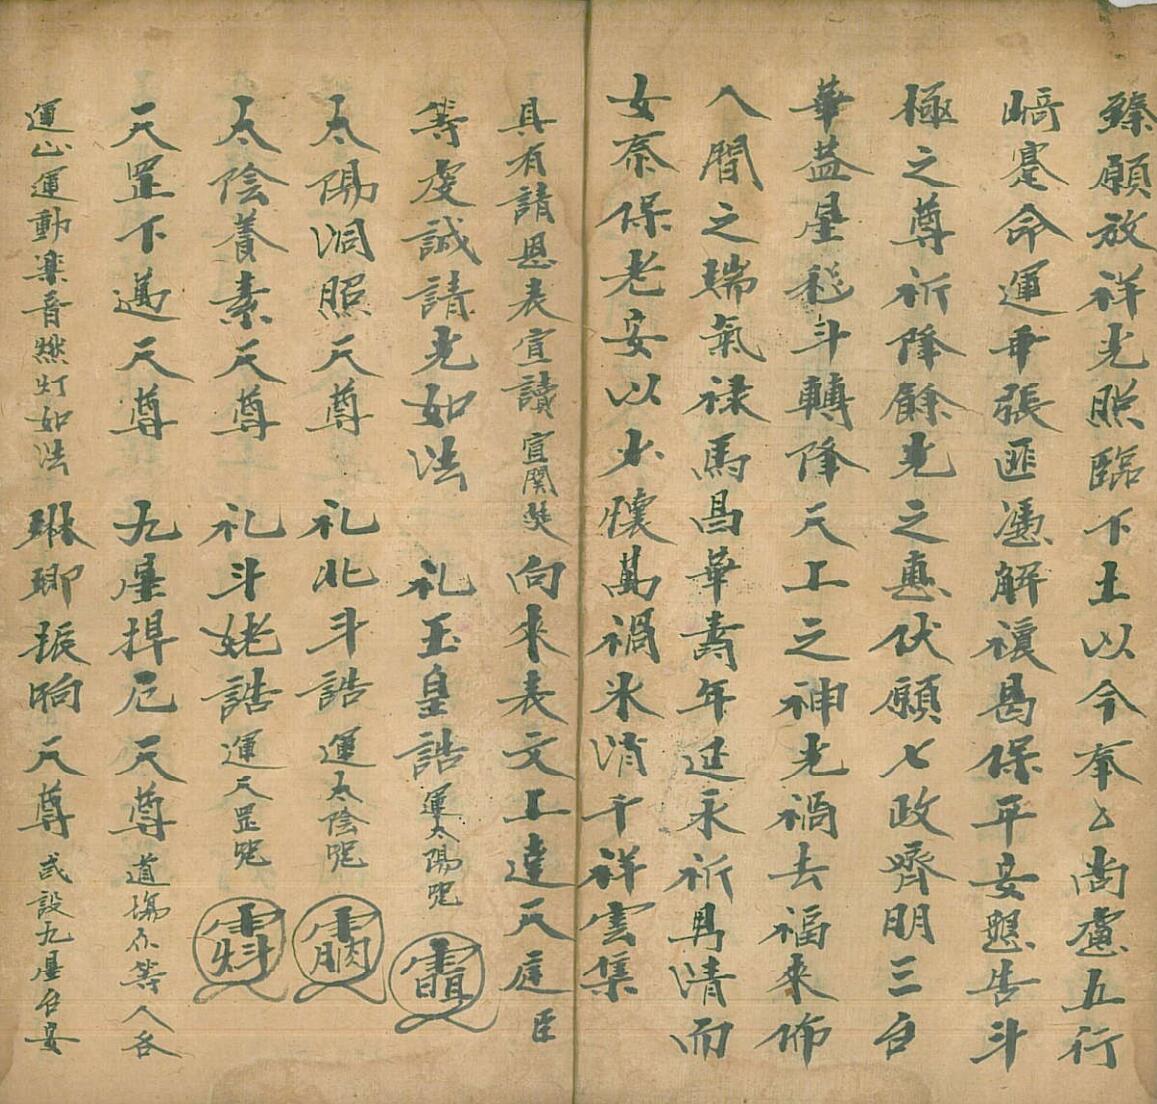 臻願放祥光照臨下土以今奉〻尚慮五行
﨑蹇命運乖張匪憑解禳曷保平安懇告斗
極之尊祈降餘光之惠伏願七政齊明三台
華蓋星移斗轉降天上之神光禍去福來佈
人間之瑞氣祿馬昌華壽年延永祈男清而
女泰保老安以少懷萬禍氷消千祥雲集
具有請恩表宣讀宣関奘向來表文上達天庭臣
等虔誠請光如法 礼玉皇誥運太陽咒
太陽洞照天尊 礼北斗誥運太陰咒
太陰養素天尊 礼斗姥誥運天罡咒
天罡下邁天尊 九星捍厄天尊道場尒等人各
運心運動楽音燃灯如法 琳瑯振响天尊或設九星台安